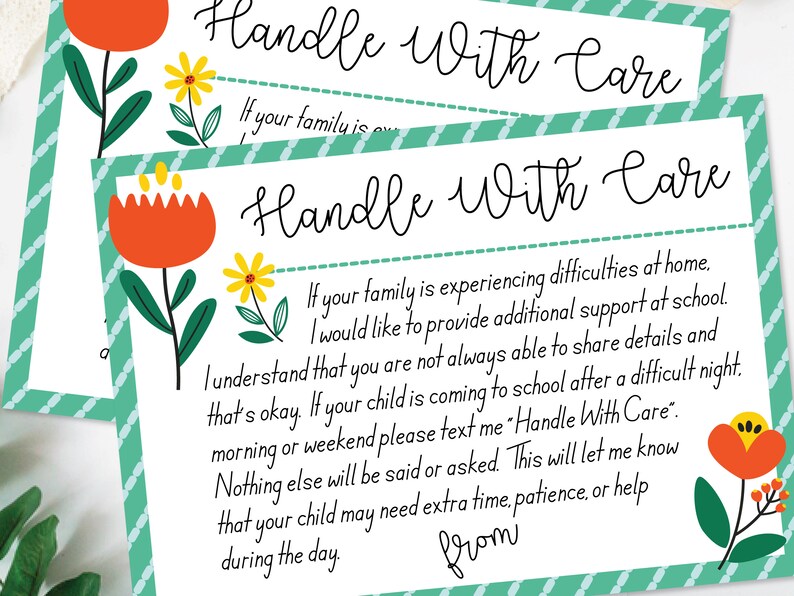 Handle With Care
If your family is
Handle With Care
If your family is experiencing difficulties at home,
I would like to provide additional support at school.
I understand that you are not always able to share details and
that's okay. If your child is coming to school after a difficult night,
morning or weekend please text me "Handle With Care".
Nothing else will be said or asked. This will let me know
that your child may need extra time, patience, or help
during the day.
from